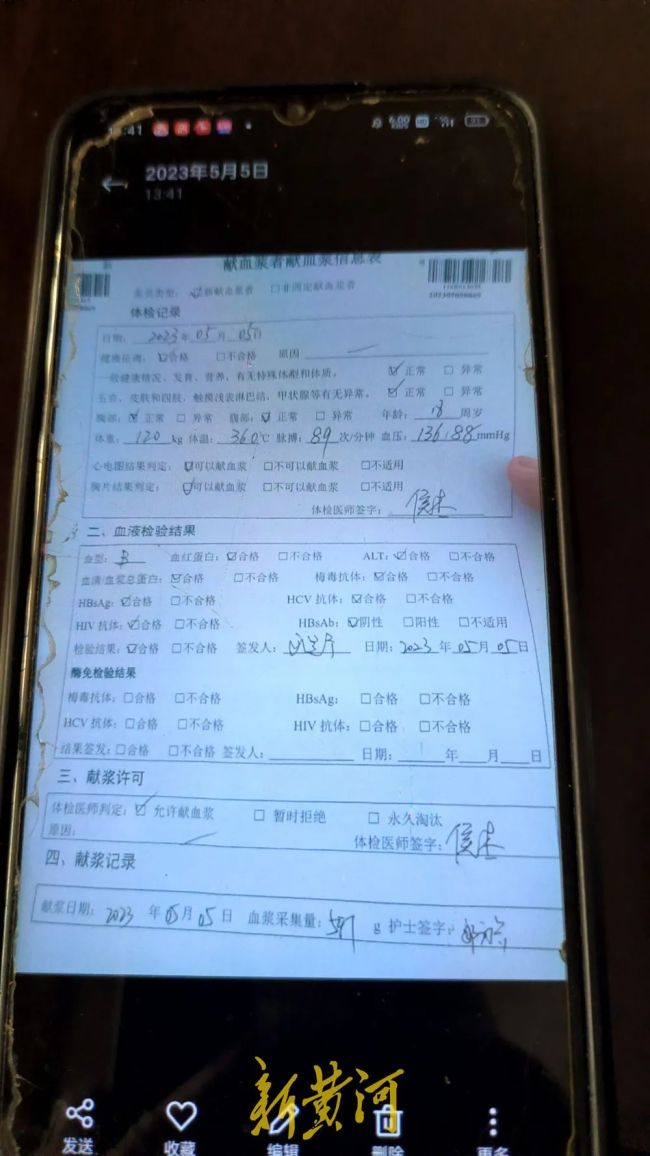 13:41
2023年5月5日
13:41
献血浆者献血浆信息表
浆员类型：☑新献血浆者 □非固定献血浆者
体检记录
日期：2023年05月05日
健康征询：☑合格 □不合格 原因
一般健康情况、发育、营养、有无特殊体型和体质。 ☑正常 □异常
五官、皮肤和四肢，触摸浅表淋巴结、甲状腺等有无异常。 ☑正常 □异常
胸部：☑正常 □异常 腹部：☑正常 □异常 年龄：18 周岁
体重：120 kg 体温：36.0℃ 脉搏：89 次/分钟 血压：136/88 mmHg
心电图结果判定：☑可以献血浆 □不可以献血浆 □不适用
胸片结果判定：☑可以献血浆 □不可以献血浆 □不适用
体检医师签字：侯杰
二、血液检验结果
血型：B 血红蛋白：☑合格 □不合格 ALT：☑合格 □不合格
血清/血浆总蛋白：☑合格 □不合格 梅毒抗体：☑合格 □不合格
HBsAg：☑合格 □不合格 HCV 抗体：☑合格 □不合格
HIV 抗体：☑合格 □不合格 HBsAb：☑阴性 □阳性 □不适用
检验结果：☑合格 □不合格 签发人： 日期：2023 年 05 月 05 日
酶免检验结果
梅毒抗体：□合格 □不合格 HBsAg： □合格 □不合格
HCV 抗体：□合格 □不合格 HIV 抗体：□合格 □不合格
结果签发：□合格 □不合格 签发人： 日期： 年 月 日
三、献浆许可
体检医师判定：☑允许献血浆 □ 暂时拒绝 □ 永久淘汰
原因： 体检医师签字：侯杰
四、献浆记录
献浆日期：2023 年 05 月 05 日 血浆采集量： g 护士签字：
新黄河
发送 收藏 编辑 删除 更多